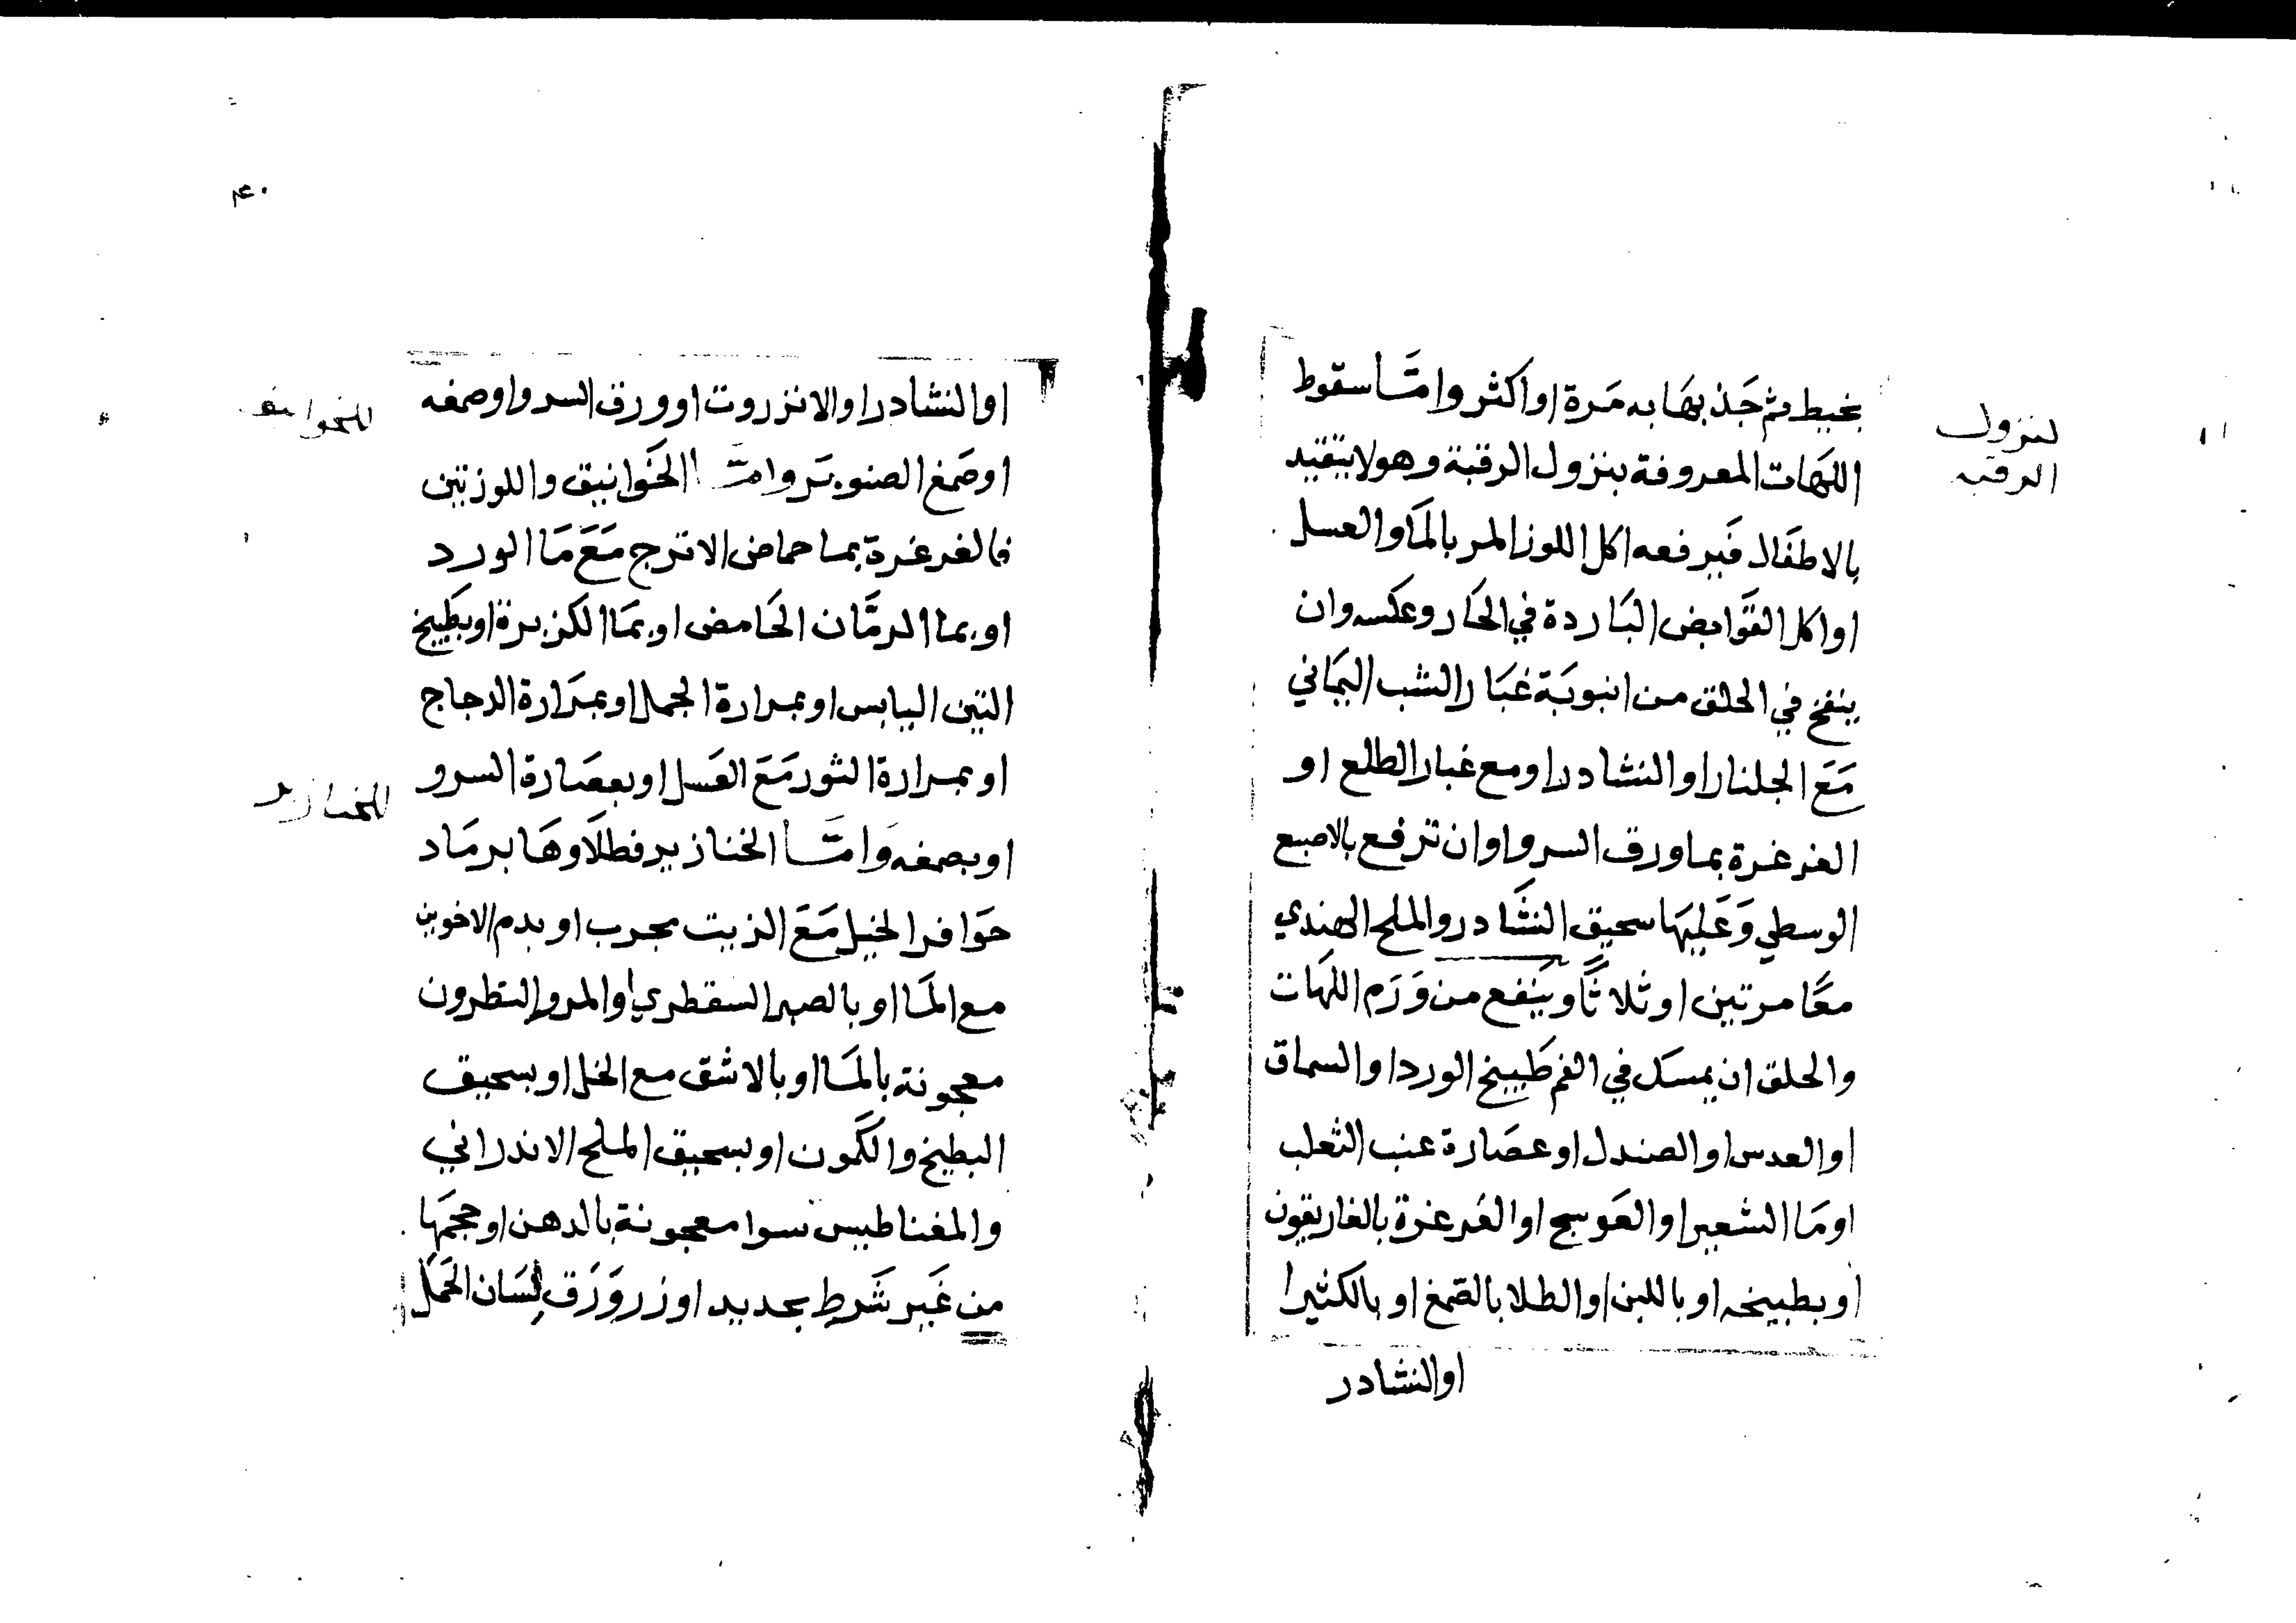 بخيط ثم جَذبهَا به مَرة اواكثر وامَّا سقوط
اللهَات المعروفة بنزول الرقبة وهولا يتقيد
بالاطفَال فَيرفعه اكل اللوز المر بالمَا والعسل
او اكل القوَابض البَاردة في الحَار وعكسه وان
ينفخ في الحلق من انبوبَة غبَار الشب اليمَاني
مَعَ الجلنار او النشادر او مع غبار الطلع او
الغرغرة بما ورق السرو او ان ترفع بالاصبع
الوسطي وَعَليهَا سحيق النشَادر والملح الهندي
معًا مرتين او ثلاثًا وينفع من وَرَم اللهَات
والحلق ان يمسك في الفم طَبيخ الورد او السماق
او العدس او الصندل او عصَارة عنب الثعلب
اومَا الشعير او العَوسج او الغَرغرة بالغاريقون
او بطبيخه او باللبن او الطلا بالصَمغ او بالكثيرا
او النشادر
لنزول
الرقبه
٤٠
او النشادر او الانزروت او ورق السرو او صمغه
او صَمغ الصنوبَر وامَّا الخَوانيق واللوزتين
فالغرغرة بما حماض الاترج مَعَ مَا الورد
او بما الرمَّان الحَامض او بمَا الكزبرة او بطَبيخ
التين اليابس او بمرارة الجمل او بمرَارة الدجاج
او بمرارة الثور مَعَ العَسل او بعصَارة السرو
او بصمغه وَامَّا الخنازير فطلَاوهَا برمَاد
حوَافر الخيل مَعَ الزيت مجرب او بدم الاخوين
مع المَا او بالصبر السقطري او المر والنطرون
معجونة بالمَا او بالاشق مع الخل او بسحيق
البطيخ والكَمون او بسحيق الملح الاندراني
والمغناطيس سوا معجونة بالدهن او حجمهَا
من غَير شَرط بحديد او زر وَرَق لِسَان الحَمَل
للخوانيق
للخنازير